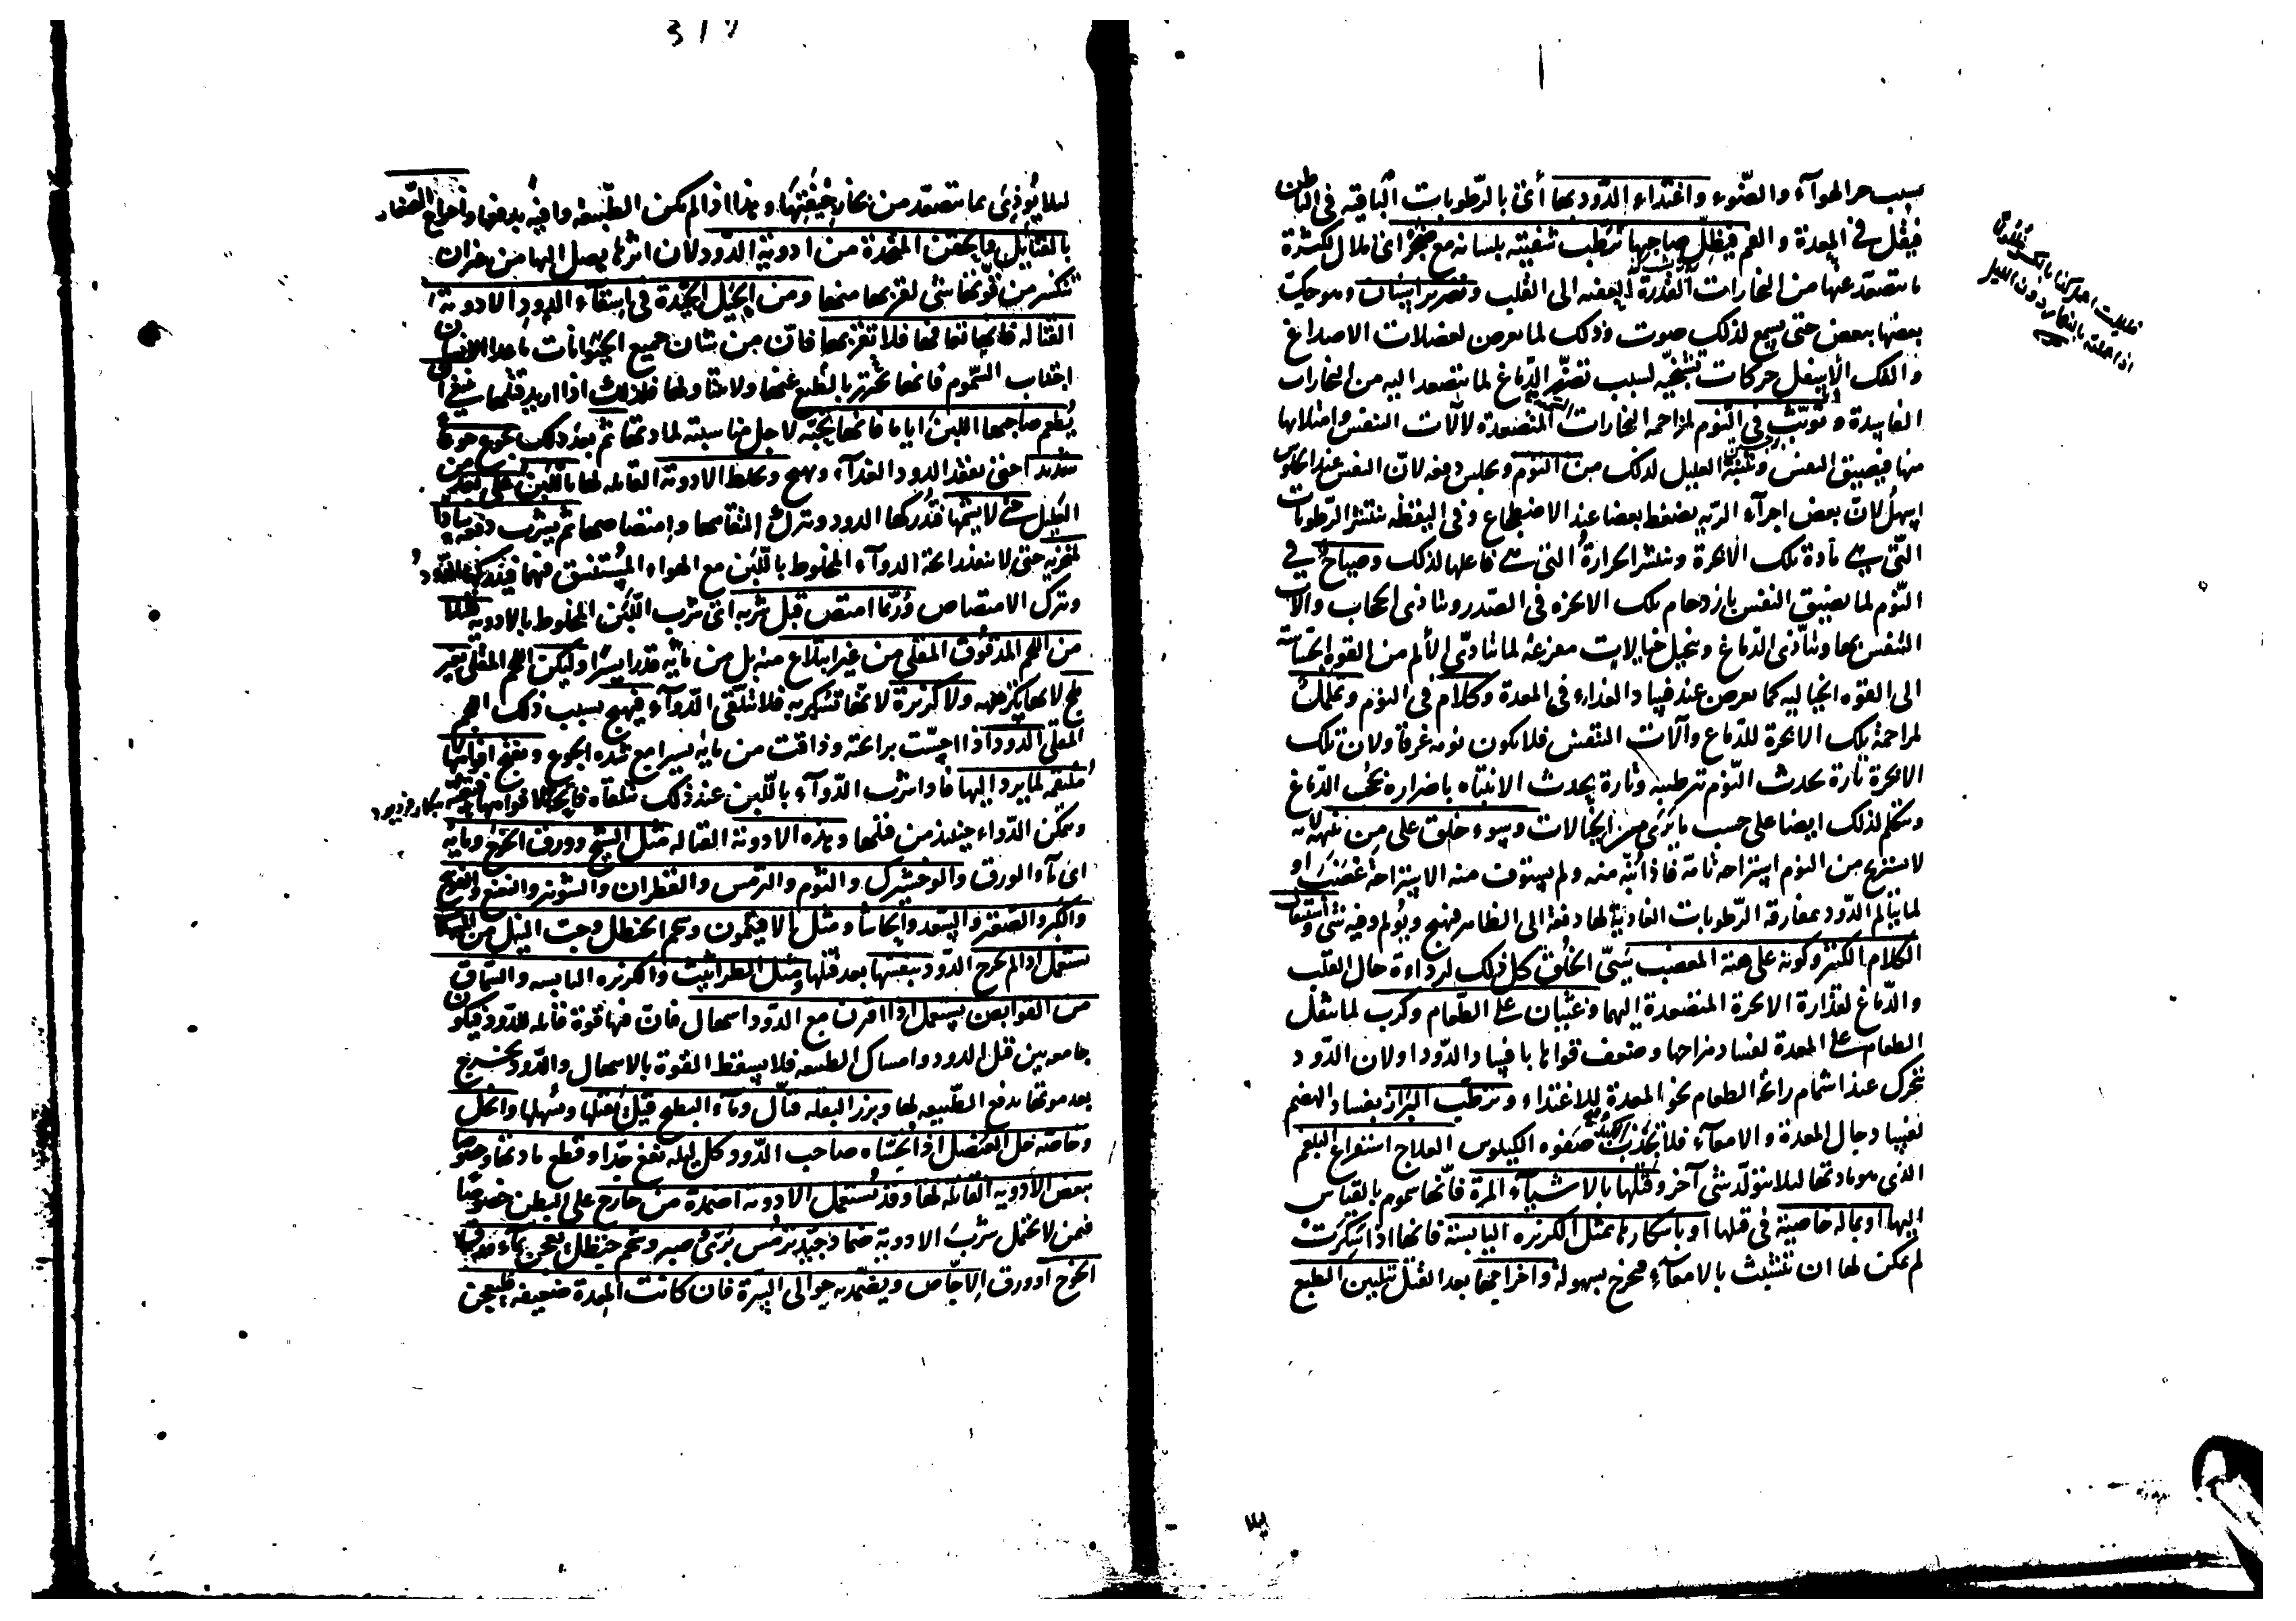 بسبب حر الهوآء والضّوء واغتداء الدّود بها أعنى بالرّطوبات الباقيه فى الباطن
فيقل فى المعدة والفم فيظلّ صاحبها يترطب شفتيه بلسانه مع ضجر اى ملال لكثرة
ما يتصعّد عنها من البخارات القذرة العفنه الى القلب وتصرير اسنان وهو حكّ
بعضها ببعض حتى يسمع لذلك صوت وذلك لما يعرض لعضلات الاصداغ
والفك الاسفل حركات تشنّجيّه لسبب تضرّر الدّماغ لما يتصعد اليه من البخارات
الفاسدة وتوثّب فى النّوم لمزاحمه البخارات المتصعدة لآلات النفس وامتلائها
منها فيضيق النفس وينتبه العليل لذلك من النّوم ويجلس دفعه لانّ النفس عند الجلوس
اسهل لانّ بعض اجزآء الرّيه يضغط بعضا عند الاضطجاع وفى اليقظه تنتشر الرّطوبات
الّتى هى مادة تلك الابخرة وينتشر الحرارة الّتى هى فاعلها لذلك وصياح فى
النّوم لما يضيق النفس بازدحام تلك الابخره فى الصّدر ويتاذى الحجاب والات
التنفس بها ويتاذى الدّماغ ويتخيل خيالات مفزعه لما يتادّى الألم من القوه الحسّاسة
الى القوه الخياليه كما يعرض عند فساد الغذاء فى المعدة وكلام فى النوم وتململ
لمزاحمة تلك الابخرة للدّماغ وآلات التنفس فلا يكون نومه غرقا ولان تلك
الابخرة تارة يحدث النّوم ترطيبه وتارة يحدث الانتباه باضراره بحجب الدّماغ
ويتكلم لذلك ايضا على حسب ما يرى من الخيالات وسوء خلق على من ينبهه لانه
لا يستريح من النوم استراحة تامّة فاذا انبّه منه ولم يستوف منه الاستراحة غضب او
لما يتالم الدّود بمفارقة الرّطوبات الغاديه لها دفعة الى الظاهر فيهيج ويؤلم وفيه شى واستثقال
الكلام الكثير وكونه على هيئة المغضب سيّئ الخلق كل ذلك لرداءة حال القلب
والدّماغ لقذارة الابخرة المتصعدة اليهما وغثيان على الطّعام وكرب لما يثقل
الطعام على المعدة لفساد مزاجها وضعف قواها بافساد الدّود او لان الدّود
يتحرك عند اشمام رائحة الطعام نحو المعدة للاغتذاء وترطّب البراز بفساد الهضم
لفساد حال المعدة والامعآء فلا تجذب الكبد صفوه الكيلوس العلاج استفراغ البلغم
الذى هو مادتها لئلا يتولّد شى آخر وقتلها بالاشيآء المرّة فانّها سموم بالقياس
اليها او بما له خاصية فى قتلها او باسكارها بمثل الكزبره اليابسة فانها اذا سكرت
لم يمكن لها ان تتشبث بالامعآء فيخرج بسهولة واخراجها بعد القتل بتليين الطبع
لئلا يؤذى بما يتصعّد من بخار جيفتها وهذا اذا لم يكن الطّبيعه وافيه بدفعها واخراج الصّغار
بالفتايل والحقن المتخذة من ادوية الدّود لان اثرها يصل اليها من غير ان
تنكسر من قوّتها شى لقربها منها ومن الحيل الجيّدة فى استقآء الدود الادوية
القتاله فانها تعافها فلا تقربها فانّ من شان جميع الحيوانات ما عدا الانسان
اجتناب السّموم فانها تحترز بالطبع عنها ولا يتناولها فلذلك اذا اريد قتلها ينبغى ان
يُطعم صاحبها اللبن اياما فانها يحبّه لاجل مناسبته لمادتها ثم بعد ذلك يجوع جوعا
شديدا حتى يفقد الدود الغذآء ويهيج ويخلط الادوية القاتله لها باللبن
لمنخريه حتى لا ينفذ رائحة الدوآء المخلوط باللّبن مع الهواء المستنشق فيهما فيدركها الدّود
وترك الامتصاص وربّما امتص قبل شربه اى شرب اللّبن المخلوط بالادوية
من اللحم المدقوق المقلى من غير ابتلاع منه بل من مائه قدرا يسيرا وليكن اللحم المقلى بغير
ملح لانها يكرهه ولا كزبرة لانّها تسكر به فلا تتلقى الدّوآء فيهيج بسبب ذلك اللحم
المقلى الدّود اذا احسّت برائحته وذاقت من مائه يسيرا مع شدة الجوع وتفتح افواهها
ملتقمه لما يرد اليها فاذا شرب الدّوآء باللّبن عند ذلك تتلقاه
ويمكن الدّواء حينئذ من قتلها وهذه الادوية القتاله مثل الشيح وورق الخوخ ومائه
اى مآء الورق والوخشيرك والثوم والترمس والقطران والشونيز والنعنع
والكبر والصعتر والسعد والحاشا ومثل الافتيمون وشحم الحنظل وحب النيل من
يستعمل اذا لم يخرج الدّود بنفسها بعد قتلها ومثل الطراثيث والكزبره اليابسه والسّماق
من القوابض يستعمل اذا اقرن مع الدّود اسهال فانّ فيها قوة قاتله للدّود فيكون
جامعه بين قتل الدود وامساك الطبيعه فلا يسقط القوة بالاسهال والدّود يخرج
بعد موتها بدفع الطّبيعه لها وبزر البقله قتّال ومآء البطيخ قيل يقتلها ويسهلها والخل
وخاصّه خل العنصل اذا تحسّاه صاحب الدّود كل ليله نفع جدّا وقطع مادتها وخصوصا
بعض الادويه القاتله لها وقد يستعمل الادويه اضمدة من خارج على البطن خصوصا
فيمن لا يحتمل شرب الادوية ضماد جيد ترمس برّى صبر وشحم حنظل يعجن بماء ورق
الخوخ او ورق الاجّاص ويضمّد به حوالى السّرّة فان كانت المعدة ضعيفه فليعجن